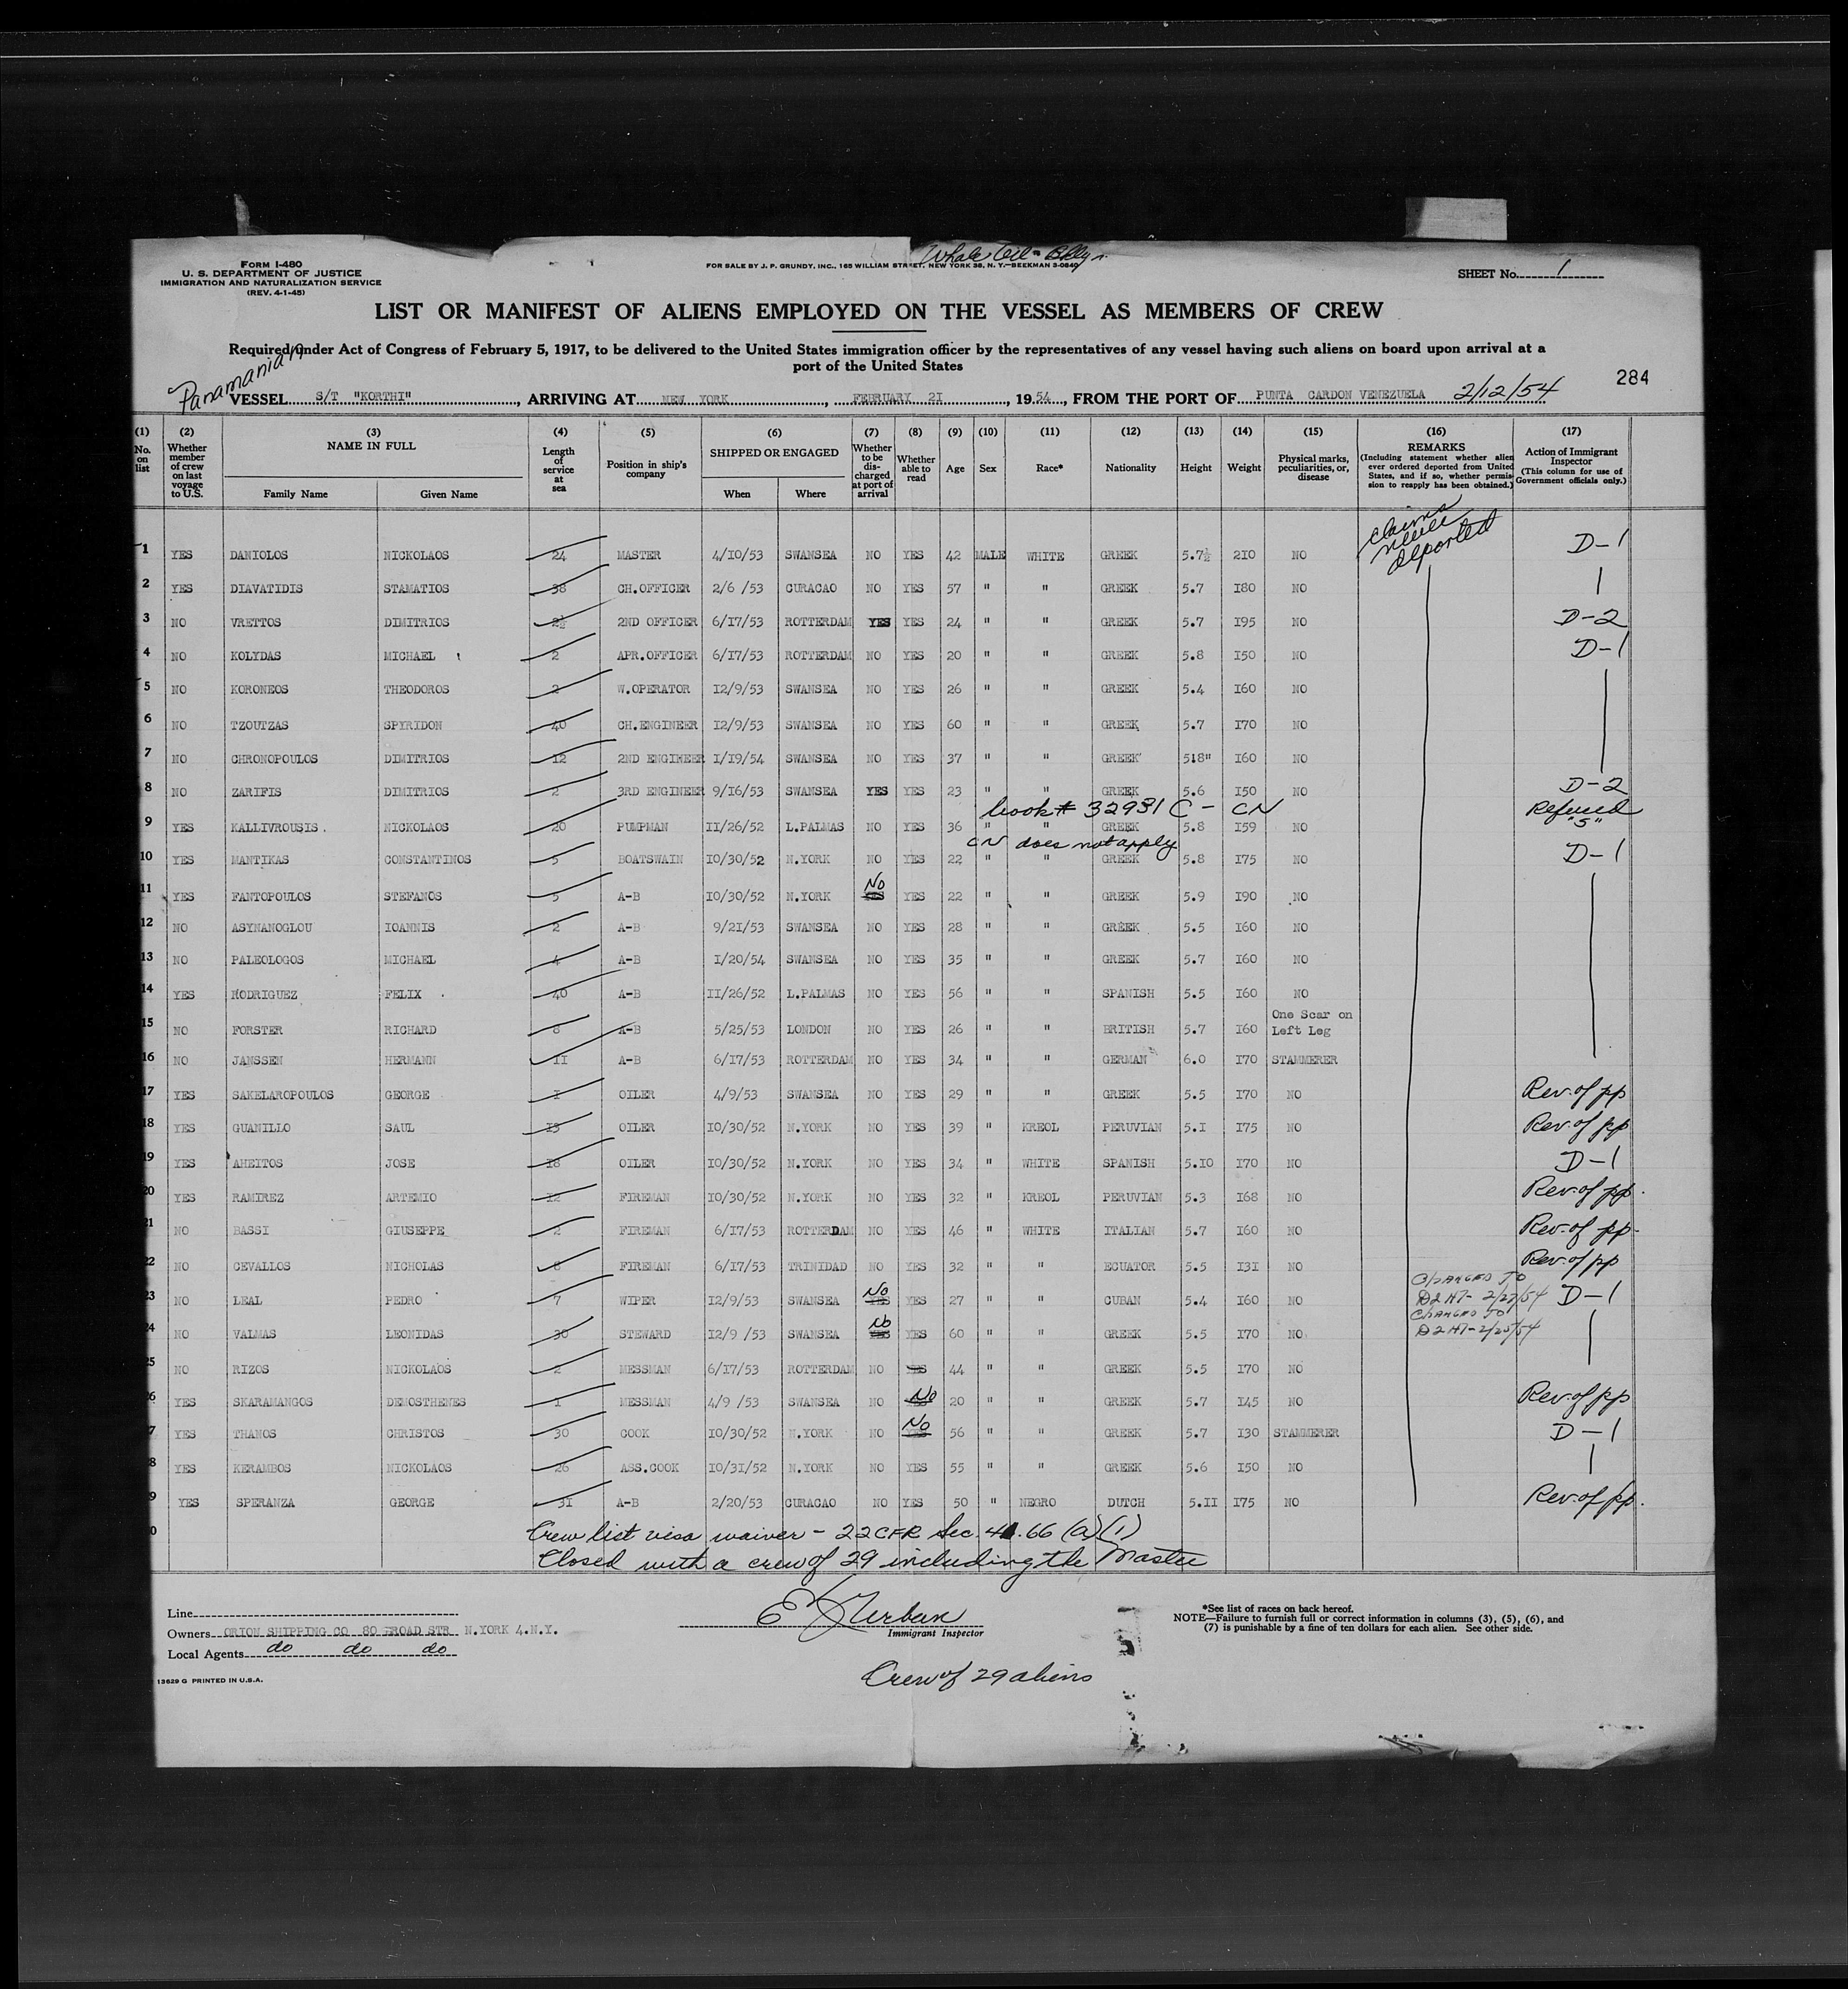 Whale Oil - Bklyn.
FORM I-480
U. S. DEPARTMENT OF JUSTICE
IMMIGRATION AND NATURALIZATION SERVICE
(REV. 4-1-45)
FOR SALE BY J. P. GRUNDY, INC., 165 WILLIAM STREET, NEW YORK 38, N. Y.—BEEKMAN 3-0840
SHEET No. 1
LIST OR MANIFEST OF ALIENS EMPLOYED ON THE VESSEL AS MEMBERS OF CREW
Required under Act of Congress of February 5, 1917, to be delivered to the United States immigration officer by the representatives of any vessel having such aliens on board upon arrival at a
port of the United States
284
Panamanian
VESSEL S/T "KORTHI", ARRIVING AT NEW YORK, FEBRUARY 2I, 1954, FROM THE PORT OF PUNTA CARDON VENEZUELA 2/12/54
(1) (2) (3) (4) (5) (6) (7) (8) (9) (10) (11) (12) (13) (14) (15) (16) (17)
No. on list
Whether member of crew on last voyage to U.S.
NAME IN FULL
Family Name Given Name
Length of service at sea
Position in ship's company
SHIPPED OR ENGAGED
When Where
Whether to be discharged at port of arrival
Whether able to read
Age Sex Race* Nationality Height Weight
Physical marks, peculiarities, or, disease
REMARKS
(Including statement whether alien ever ordered deported from United States, and if so, whether permission to reapply has been obtained.)
Action of Immigrant Inspector
(This column for use of Government officials only.)
claims never deported
1 YES DANIOLOS NICKOLAOS 24 MASTER 4/10/53 SWANSEA NO YES 42 MALE WHITE GREEK 5.7½ 2I0 NO D-1
2 YES DIAVATIDIS STAMATIOS 38 CH.OFFICER 2/6 /53 CURACAO NO YES 57 " " GREEK 5.7 I80 NO
3 NO VRETTOS DIMITRIOS 2½ 2ND OFFICER 6/I7/53 ROTTERDAM YES YES 24 " " GREEK 5.7 I95 NO D-2
4 NO KOLYDAS MICHAEL 2 APR.OFFICER 6/I7/53 ROTTERDAM NO YES 20 " " GREEK 5.8 I50 NO D-1
5 NO KORONEOS THEODOROS 2 W.OPERATOR I2/9/53 SWANSEA NO YES 26 " " GREEK 5.4 I60 NO
6 NO TZOUTZAS SPYRIDON 40 CH.ENGINEER I2/9/53 SWANSEA NO YES 60 " " GREEK 5.7 I70 NO
7 NO CHRONOPOULOS DIMITRIOS I2 2ND ENGINEER I/I9/54 SWANSEA NO YES 37 " " GREEK 5I8" I60 NO
8 NO ZARIFIS DIMITRIOS 2 3RD ENGINEER 9/I6/53 SWANSEA YES YES 23 " " GREEK 5.6 I50 NO D-2
book # 32931 C - CN
9 YES KALLIVROUSIS. NICKOLAOS 20 PUMPMAN II/26/52 L.PALMAS NO YES 36 " " GREEK 5.8 I59 NO Refused "5"
CN does not apply
10 YES MANTIKAS CONSTANTINOS 5 BOATSWAIN I0/30/52 N.YORK NO YES 22 " " GREEK 5.8 I75 NO D-1
11 YES FANTOPOULOS STEFANOS 5 A-B I0/30/52 N.YORK YES No YES 22 " " GREEK 5.9 I90 NO
12 NO ASYNANOGLOU IOANNIS 2 A-B 9/2I/53 SWANSEA NO YES 28 " " GREEK 5.5 I60 NO
13 NO PALEOLOGOS MICHAEL 4 A-B I/20/54 SWANSEA NO YES 35 " " GREEK 5.7 I60 NO
14 YES RODRIGUEZ FELIX 40 A-B II/26/52 L.PALMAS NO YES 56 " " SPANISH 5.5 I60 NO
15 NO FORSTER RICHARD 8 A-B 5/25/53 LONDON NO YES 26 " " BRITISH 5.7 I60 One Scar on Left Leg
16 NO JANSSEN HERMANN II A-B 6/I7/53 ROTTERDAM NO YES 34 " " GERMAN 6.0 I70 STAMMERER
17 YES SAKELAROPOULOS GEORGE I OILER 4/9/53 SWANSEA NO YES 29 " " GREEK 5.5 I70 NO Rev. of pp
18 YES GUANILLO SAUL I5 OILER I0/30/52 N.YORK NO YES 39 " KREOL PERUVIAN 5.I I75 NO Rev. of pp
19 YES AHEITOS JOSE I8 OILER I0/30/52 N.YORK NO YES 34 " WHITE SPANISH 5.I0 I70 NO D-1
20 YES RAMIREZ ARTEMIO I2 FIREMAN I0/30/52 N.YORK NO YES 32 " KREOL PERUVIAN 5.3 I68 NO Rev. of pp.
21 NO BASSI GIUSEPPE 2 FIREMAN 6/I7/53 ROTTERDAM NO YES 46 " WHITE ITALIAN 5.7 I60 NO Rev. of pp.
22 NO CEVALLOS NICHOLAS 8 FIREMAN 6/I7/53 TRINIDAD NO YES 32 " " ECUATOR 5.5 I3I NO Rev. of pp
23 NO LEAL PEDRO 7 WIPER I2/9/53 SWANSEA YES No YES 27 " " CUBAN 5.4 I60 NO CHANGED TO D2 2/27/54 D-1
24 NO VALMAS LEONIDAS 30 STEWARD I2/9 /53 SWANSEA YES No YES 60 " " GREEK 5.5 I70 NO CHANGED TO D2 2/25/54
25 NO RIZOS NICKOLAOS 2 MESSMAN 6/I7/53 ROTTERDAM NO YES 44 " " GREEK 5.5 I70 NO
26 YES SKARAMANGOS DEMOSTHENES I MESSMAN 4/9 /53 SWANSEA NO YES No 20 " " GREEK 5.7 I45 NO Rev. of pp
7 YES THANOS CHRISTOS 30 COOK I0/30/52 N.YORK NO YES No 56 " " GREEK 5.7 I30 STAMMERER D-1
8 YES KERAMBOS NICKOLAOS 26 ASS.COOK I0/3I/52 N.YORK NO YES 55 " " GREEK 5.6 I50 NO
9 YES SPERANZA GEORGE 3I A-B 2/20/53 CURACAO NO YES 50 " NEGRO DUTCH 5.II I75 NO Rev. of pp.
0 Crew list visa waiver - 22 CFR Sec. 41.66 (a)(1)
Closed with a crew of 29 including the Master
Line
Owners ORION SHIPPING CO 80 BROAD STR N.YORK 4.N.Y.
Local Agents do do do
13629 G PRINTED IN U.S.A.
Immigrant Inspector
Crew of 29 aliens
*See list of races on back hereof.
NOTE—Failure to furnish full or correct information in columns (3), (5), (6), and
(7) is punishable by a fine of ten dollars for each alien. See other side.